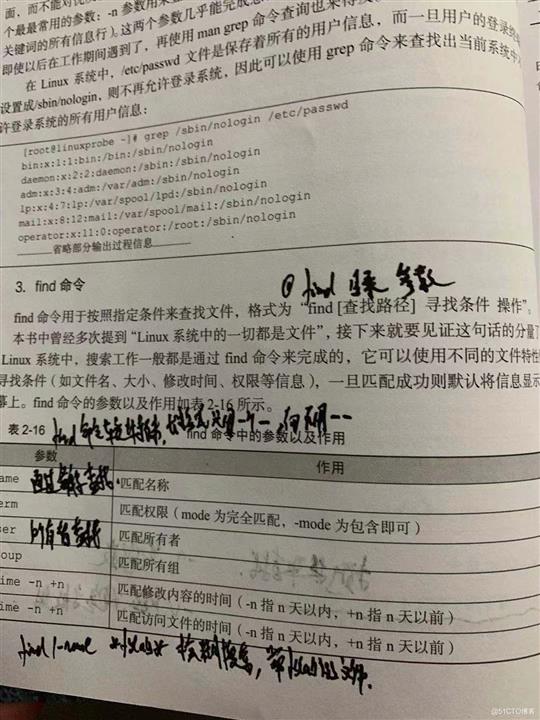 面，而不能对
个最最常用的参数：-n 参数用来
关键词的所有信息行）。这两个参数几乎能完成
即使以后在工作期间遇到了，再使用 man grep 命令查询也来得及
在 Linux 系统中，/etc/passwd 文件是保存着所有的用户信息，而一旦用户的登录
设置成/sbin/nologin，则不再允许登录系统，因此可以使用 grep 命令来查找出当前系统中
许登录系统的所有用户信息：
[root@linuxprobe ~]# grep /sbin/nologin /etc/passwd
bin:x:1:1:bin:/bin:/sbin/nologin
daemon:x:2:2:daemon:/sbin:/sbin/nologin
adm:x:3:4:adm:/var/adm:/sbin/nologin
lp:x:4:7:lp:/var/spool/lpd:/sbin/nologin
mail:x:8:12:mail:/var/spool/mail:/sbin/nologin
operator:x:11:0:operator:/root:/sbin/nologin
省略部分输出过程信息
3. find 命令
find 目录 参数
find 命令用于按照指定条件来查找文件，格式为“find [查找路径] 寻找条件 操作”。
本书中曾经多次提到“Linux 系统中的一切都是文件”，接下来就要见证这句话的分量了
Linux 系统中，搜索工作一般都是通过 find 命令来完成的，它可以使用不同的文件特性
寻找条件（如文件名、大小、修改时间、权限等信息），一旦匹配成功则默认将信息显示
幕上。find 命令的参数以及作用如表 2-16 所示。
find 命令
表 2-16 find 命令中的参数以及作用
参数 作用
ame 匹配名称
erm 匹配权限（mode 为完全匹配，-mode 为包含即可）
ser 所有者查找 匹配所有者
oup 匹配所有组
ime -n +n 匹配修改内容的时间（-n 指 n 天以内，+n 指 n 天以前）
ime -n +n 匹配访问文件的时间（-n 指 n 天以内，+n 指 n 天以前）
find /-name 文件.
@51CTO博客